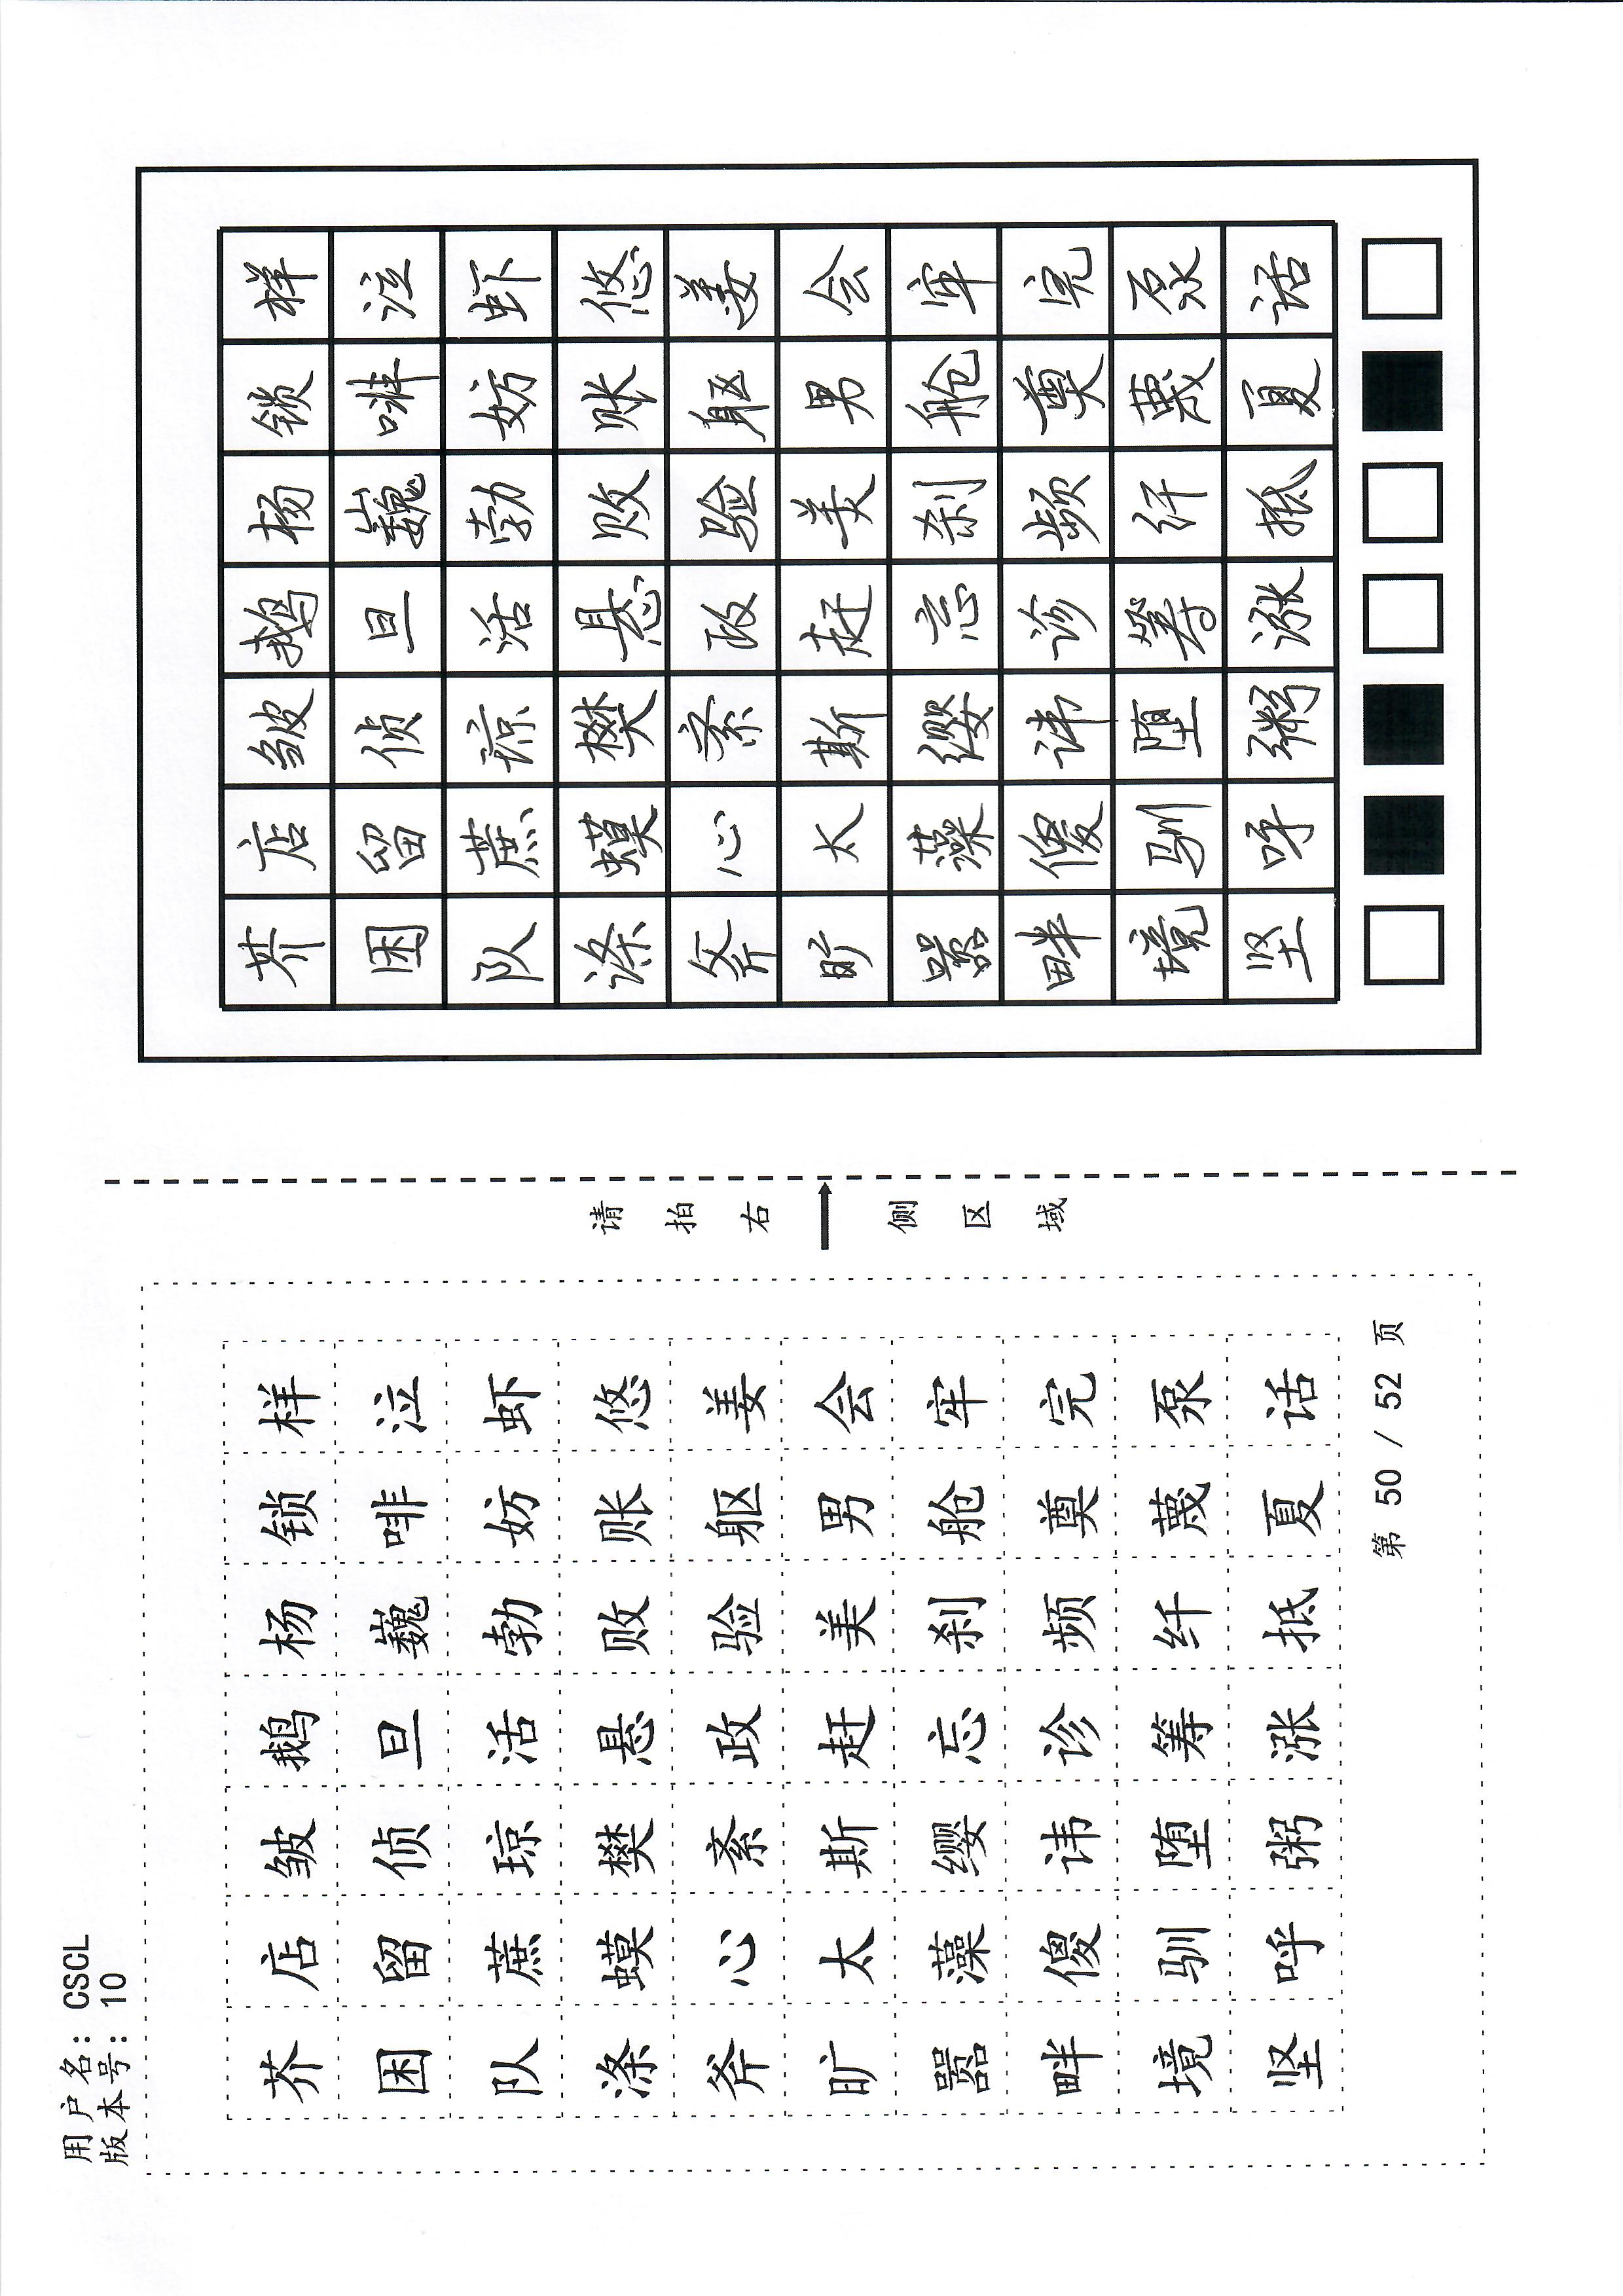 用户名: CSCL
版本号: 10
芥店皱鹅杨锁样
困留侦旦巍啡泣
队蔗琼活勃妨虾
涤蟆樊悬败账悠
斧心紊政验躯姜
旷太斯赶美男会
嚣藻缨忘刹舱牢
畔傻讳诊频奠完
境驯堕筹纤蔑泵
坚呼粥涨抵夏话
第 50 / 52 页
请拍右侧区域
芥店皱鹅杨锁样
困留侦旦巍啡泣
队蔗琼活勃妨虾
涤蟆樊悬败账悠
斧心紊政验躯姜
旷太斯赶美男会
嚣藻缨忘刹舱牢
畔傻讳诊频奠完
境驯堕筹纤蔑泵
坚呼粥涨抵夏话